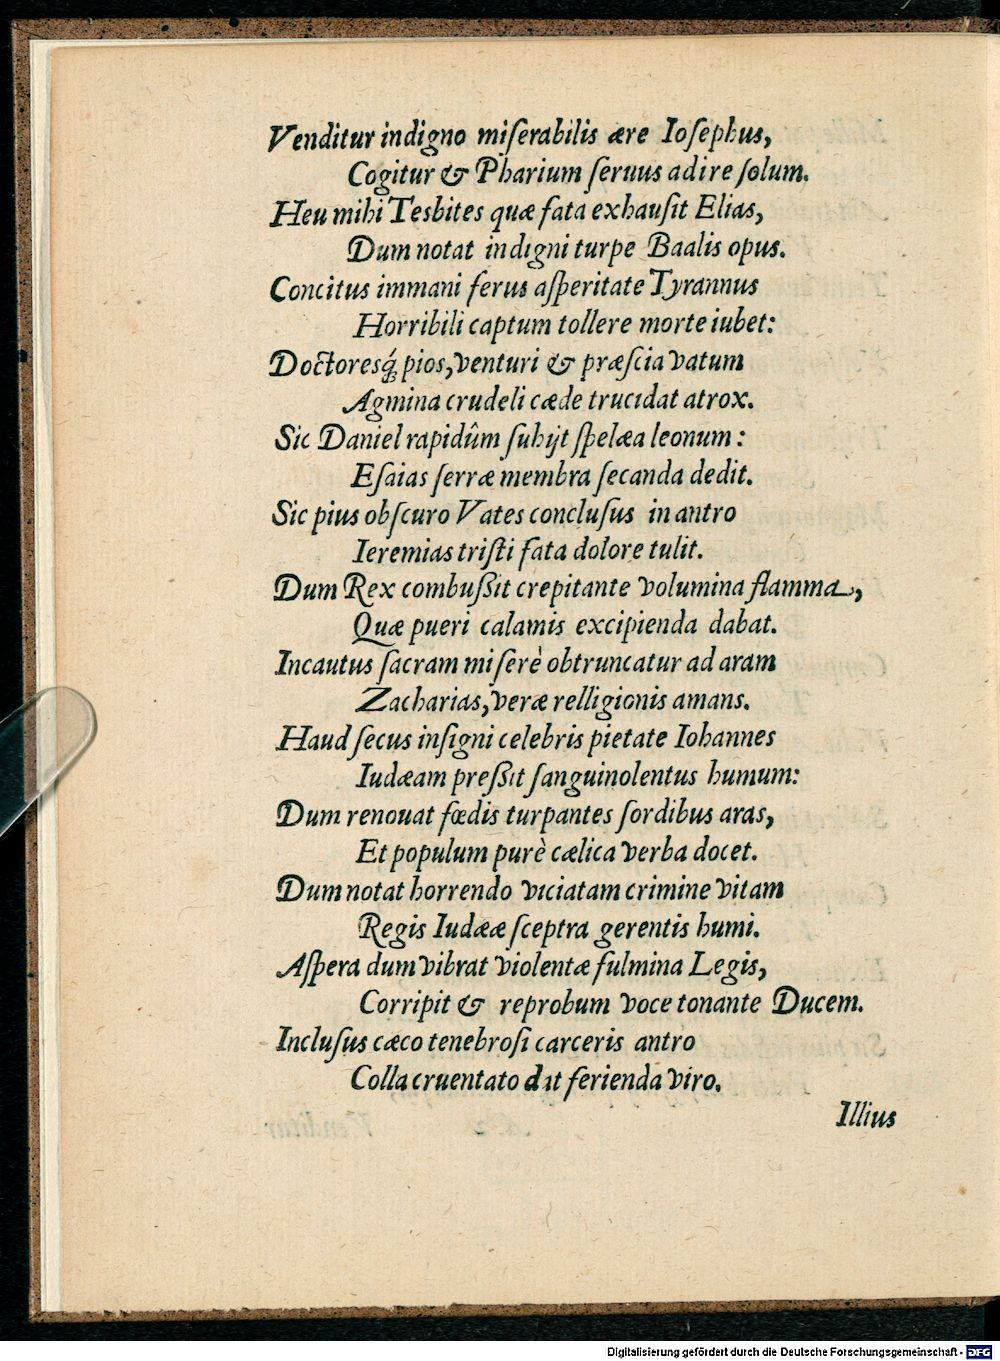 Venditur indigno miſerabilis ære Ioſephus,
Cogitur & Pharium ſeruus adire ſolum.
Heu mihi Tesbites quæ fata exhauſit Elias,
Dum notat indigni turpe Baalis opus.
Concitus immani ferus aſperitate Tyrannus
Horribili captum tollere morte iubet:
Doctoresq́; pios, venturi & præſcia vatum
Agmina crudeli cæde trucidat atrox.
Sic Daniel rapidûm ſubijt ſpelæa leonum:
Eſaias ſerræ membra ſecanda dedit.
Sic pius obſcuro Vates concluſus in antro
Ieremias triſti fata dolore tulit.
Dum Rex combußit crepitante volumina flamma,
Quæ pueri calamis excipienda dabat.
Incautus ſacram miſerè obtruncatur ad aram
Zacharias, veræ relligionis amans.
Haud ſecus inſigni celebris pietate Iohannes
Iudæam preßit ſanguinolentus humum:
Dum renouat fœdis turpantes ſordibus aras,
Et populum purè cælica verba docet.
Dum notat horrendo viciatam crimine vitam
Regis Iudææ ſceptra gerentis humi.
Aſpera dum vibrat violentæ fulmina Legis,
Corripit & reprobum voce tonante Ducem.
Incluſus cæco tenebroſi carceris antro
Colla cruentato dat ferienda viro.
Illius
Digitalisierung gefördert durch die Deutsche Forschungsgemeinschaft - DFG